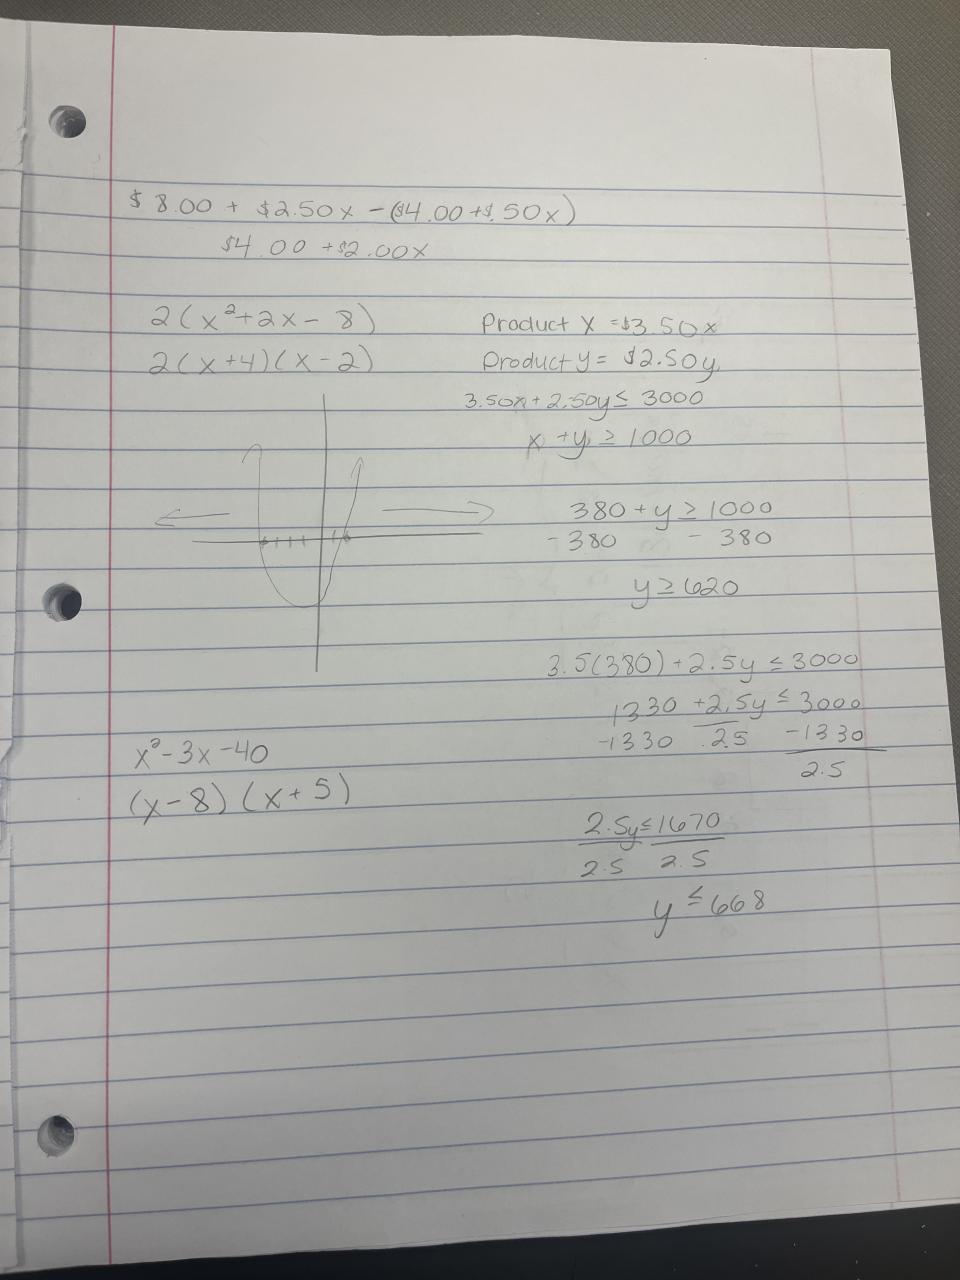 $ 8.00 + $2.50x - ($4.00 + $.50x)
$4.00 + $2.00x
2(x²+2x - 8)
2(x+4)(x-2)
Product X = $3.50x
Product y = $2.50y
3.50x + 2.50y ≤ 3000
x + y ≥ 1000
380 + y ≥ 1000
-380 - 380
y ≥ 620
3.5(380) + 2.5y ≤ 3000
1330 + 2.5y ≤ 3000
-1330 2.5 -1330
2.5
x² - 3x - 40
(x-8) (x+5)
2.5y ≤ 1670
2.5 2.5
y ≤ 668